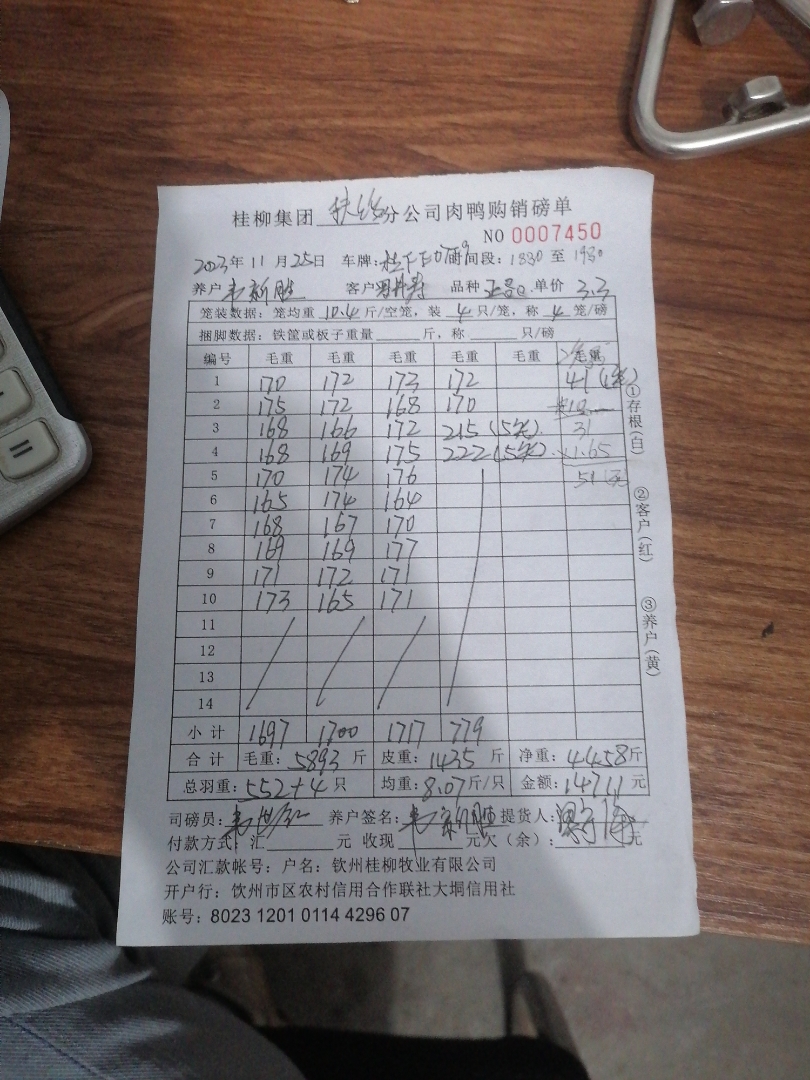 桂柳集团 扶绥 分公司肉鸭购销磅单
NO 0007450
2023年 11月 25日 车牌: 时间段: 1830 至 1930
养户 韦新胜 客户 品种 单价 3.3
笼装数据: 笼均重 10.4 斤/空笼, 装 4 只/笼, 称 4 笼/磅
捆脚数据: 铁筐或板子重量 斤, 称 只/磅
编号 毛重 毛重 毛重 毛重 毛重 毛重
1 170 172 173 172 41
2 175 172 168 170
3 168 166 172 215 (5笼) 31
4 168 169 175 222 (5笼) ×1.65
5 170 174 176 51
6 165 174 164
7 168 167 170
8 169 169 177
9 171 172 171
10 173 165 171
11
12
13
14
小计 1697 1700 1717 779
合计 毛重: 5893 斤 皮重: 1435 斤 净重: 4458 斤
总羽重: 552+4 只 均重: 8.07 斤/只 金额: 14711 元
司磅员: 养户签名: 韦新胜 提货人:
付款方式: 汇 元 收现 元欠(余): 元
公司汇款帐号: 户名: 钦州桂柳牧业有限公司
开户行: 饮州市区农村信用合作联社大垌信用社
账号: 8023 1201 0114 4296 07
①存根(白)
②客户(红)
③养户(黄)